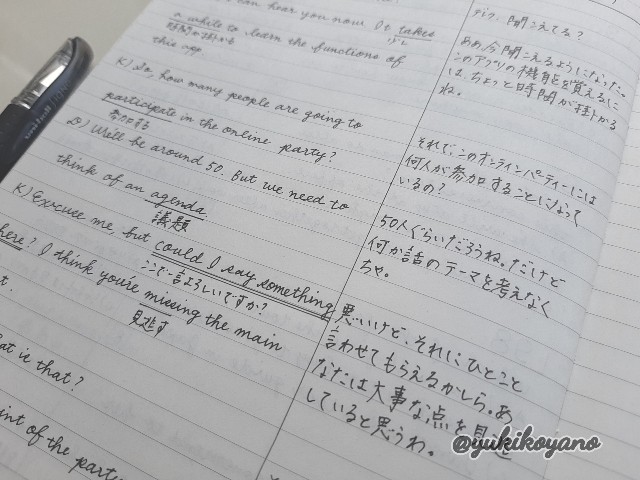 can hear you now. It takes
少し
a while to learn the functions of
時間が掛かる
this app.
K) So, how many people are going to
participate in the online party?
参加する
D) We'll be around 50. But we need to
think of an agenda
議題
K) Excuse me, but could I say something
here? I think you're missing the main
ここで一言よろしいですか?
見逃す
t.
at is that?
int of the party
聞こえてる?
ああ、今聞こえるようになったよ。
このアプリの機能を覚えるに
は、ちょっと時間が掛かる
ね。
それで、このオンラインパーティーには
何人が参加することになって
いるの?
50人くらいだろうね。だけど
何か話のテーマを考えなく
ちゃ。
悪いけど、それにひとこと
言わせてもらえるかしら。あ
なたは大事な点を見逃
していると思うわ。
uni-ball
@yukikoyano